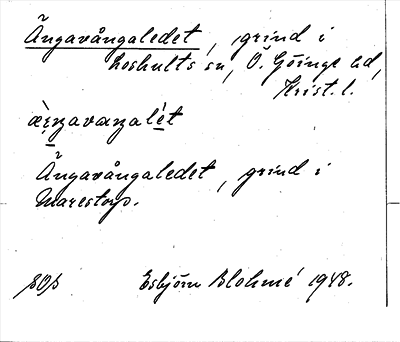 Ängavångaledet, grind i
Loshults sn, Ö. Göinge hd,
Krist. l.
Ängavångaledet, grind i
Marestorp.
Esbjörn Blohmé 1948.